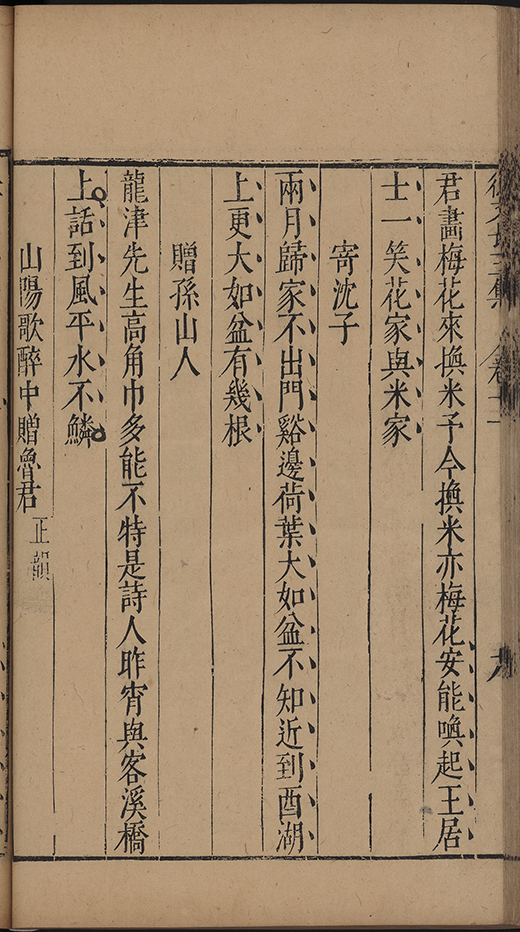 徐文長三集 卷十一
君畫梅花來換米予今換米亦梅花安能喚起王居
士一笑花家與米家
寄沈子
兩月歸家不出門谿邊荷葉大如盆不知近到酉湖
上更大如盆有幾根
贈孫山人
龍津先生高角巾多能不特是詩人昨宵與客溪橋
上話到風平水不鱗
山陽歌醉中贈魯君正韻